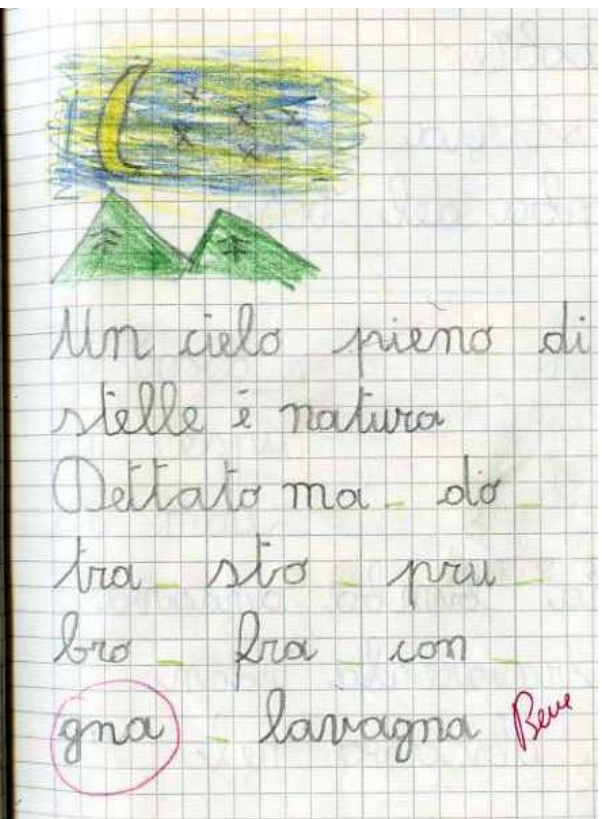 Un cielo pieno di
stelle è natura
Dettato ma - do -
tra - sto - pru -
bro - fra - con -
gna - lavagna Bene